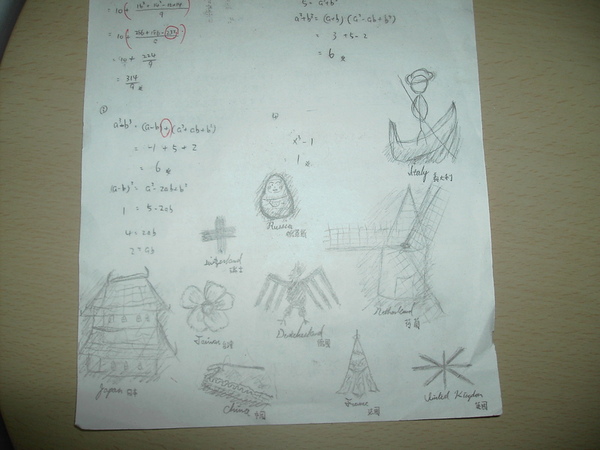 = 10 (
9
= 10 (
2
= 79 + 224/9
= 314/9
a³+b³ = (a+b) (a²-ab+b²)
= 3 + 5 - 2
= 6
a³-b³ = (a-b) + (a²+ab+b²)
= -1 + 5 + 2
= 6
(a-b)² = a² - 2ab + b²
1 = 5 - 2ab
4 = 2ab
2 = ab
x³ - 1
1
Italy 義大利
Russia 俄羅斯
Switzerland 瑞士
Netherland 荷蘭
Taiwan 台灣
Deutschland 德國
Japan 日本
China 中國
France 法國
United Kingdom 英國